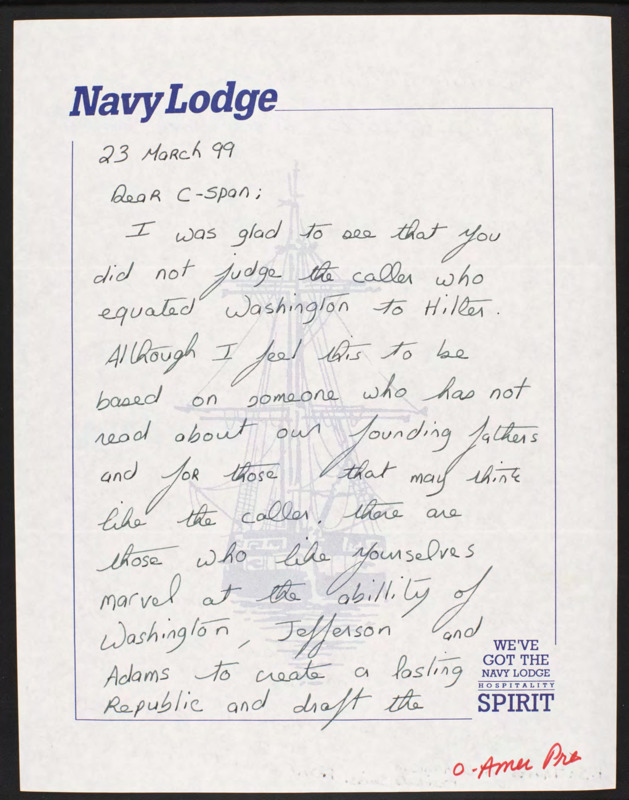 Navy Lodge
23 March 99
Dear C-Span;
I was glad to see that you
did not judge the caller who
equated Washington to Hilter.
Although I feel this to be
based on someone who has not
read about our founding fathers
and for those that may think
like the caller. there are
those who like yourselves
marvel at the abillity of
Washington, Jefferson and
Adams to create a lasting
Republic and draft the
WE'VE
GOT THE
NAVY LODGE
HOSPITALITY
SPIRIT
O-Amer Pre